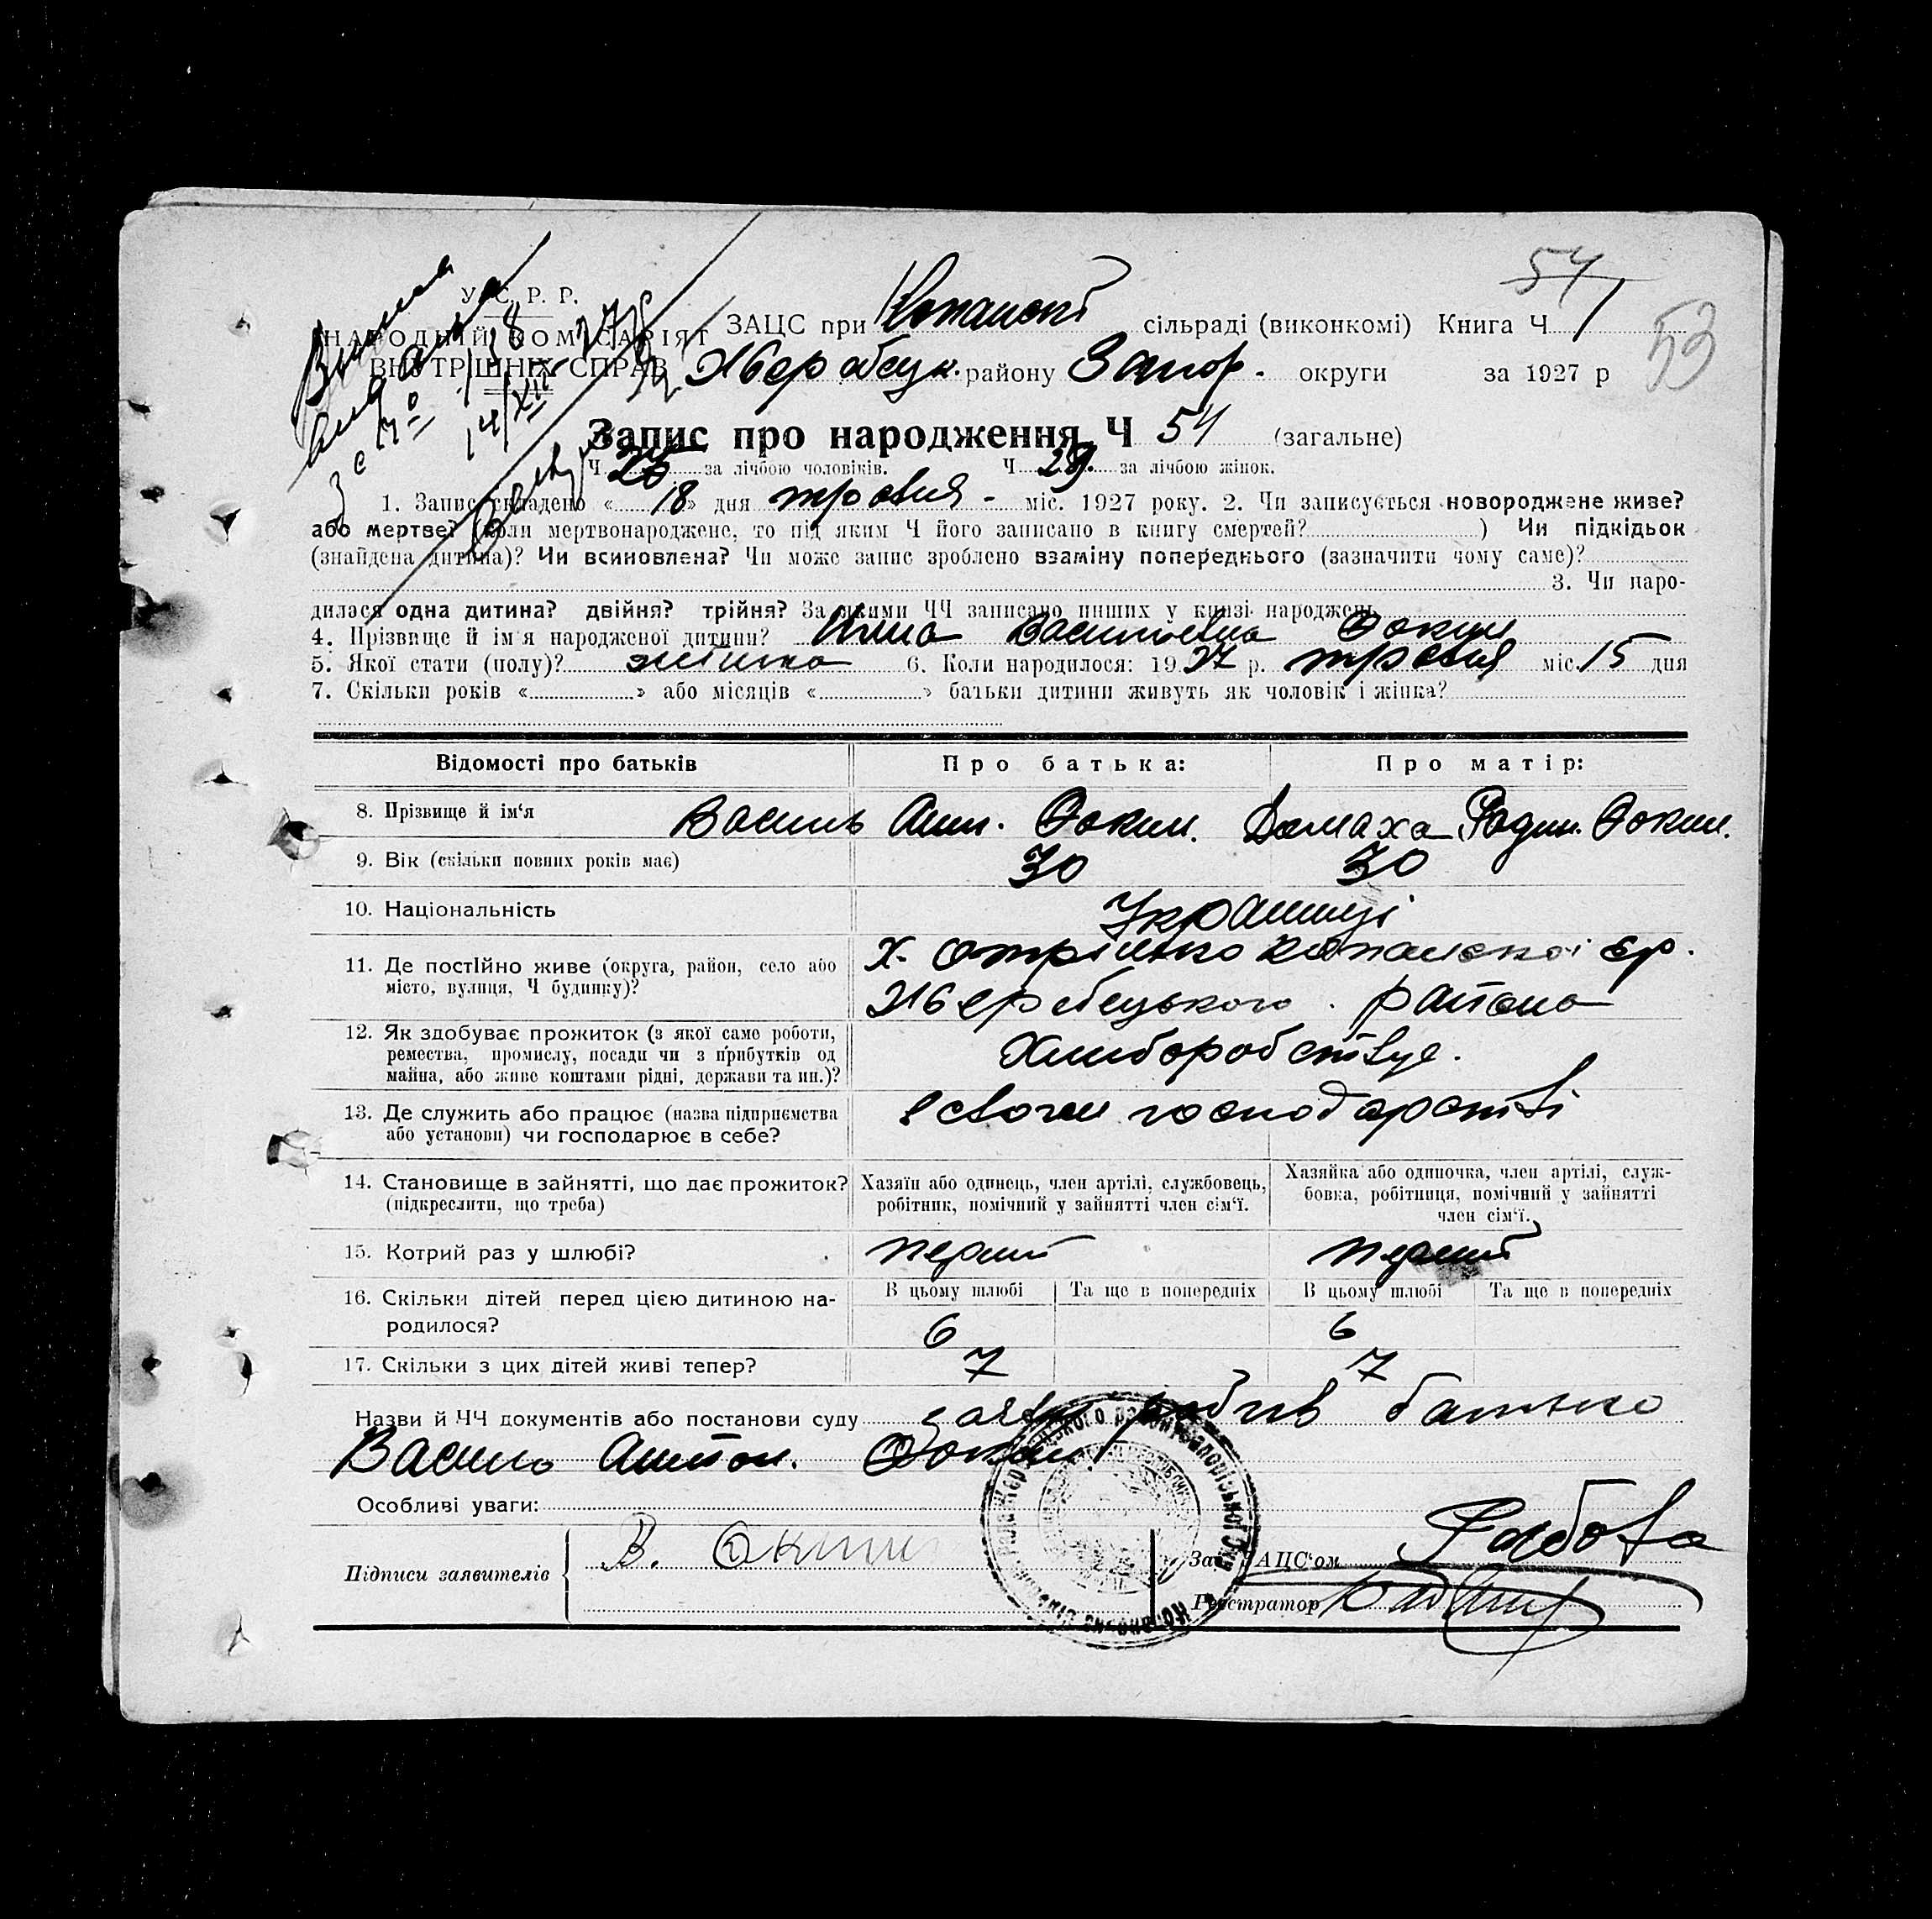 54
У. С. Р. Р.
НАРОДНІЙ КОМІСАРІЯТ
ВНУТРІШНІХ СПРАВ
ЗАЦС при Копанскі сільраді (виконкомі) Книга Ч 1
53
Жеребецк. району Запор. округи за 1927 р
Запис про народження Ч 54 (загальне)
Ч 25 за лічбою чоловіків. Ч 29. за лічбою жінок.
1. Запис складено «18» дня травня - міс. 1927 року. 2. Чи записується новороджене живе?
або мертве? (коли мертвонароджене, то під яким Ч його записано в книгу смертей? ) Чи підкідьок
(знайдена дитина)? Чи всиновлена? Чи може запис зроблено взаміну попереднього (зазначити чому саме)?
3. Чи наро-
дилася одна дитина? двійня? трійня? За якими ЧЧ записано инших у книзі народжень
4. Прізвище й ім'я народженої дитини? Васильевна Фокин
5. Якої стати (полу)? жіника 6. Коли народилося: 1927 р. травня міс. 15 дня
7. Скільки років « » або місяців « » батьки дитини живуть як чоловік і жінка?
Відомості про батьків Про батька: Про матір:
8. Прізвище й ім'я Василь Ант. Фокин. Домаха Родин. Фокин.
9. Вік (скільки повних років має) 30 30
10. Національність Украинці
11. Де постійно живе (округа, район, село або
місто, вулиця, Ч будинку)?
Х. Копанскоі ср.
Жеребецького району
12. Як здобуває прожиток (з якої саме роботи,
ремества, промислу, посади чи з прибутків од
майна, або живе коштами рідні, держави та ин.)?
Хлиборобствує.
13. Де служить або працює (назва підприємства
або установи) чи господарює в себе?
в своем господарстві
14. Становище в зайнятті, що дає прожиток?
(підкреслити, що треба)
Хазяїн або одинець, член артілі, службовець,
робітник, помічний у зайнятті член сім'ї.
Хазяйка або одиночка, член артілі, служ-
бовка, робітниця, помічний у зайнятті
член сім'ї.
15. Котрий раз у шлюбі? перший перший
16. Скільки дітей перед цією дитиною на-
родилося?
В цьому шлюбі Та ще в попередніх В цьому шлюбі Та ще в попередніх
6 6
17. Скільки з цих дітей живі тепер? 7 7
Назви й ЧЧ документів або постанови суду заяву робив батько
Василь Антон. Фокин
Особливі уваги:
Підписи заявителів В. Фокин
Зав. ЗАЦС'ом
Реєстратор